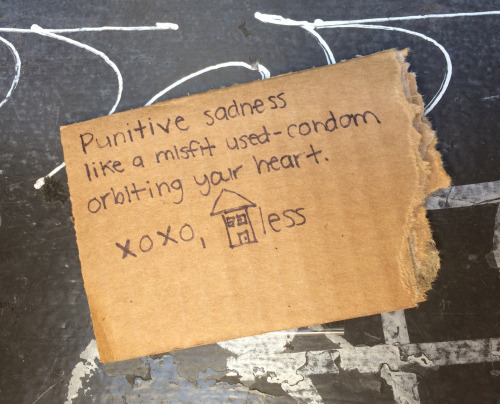 Punitive sadness
like a misfit used-condom
orbiting your heart.
xoxo, less